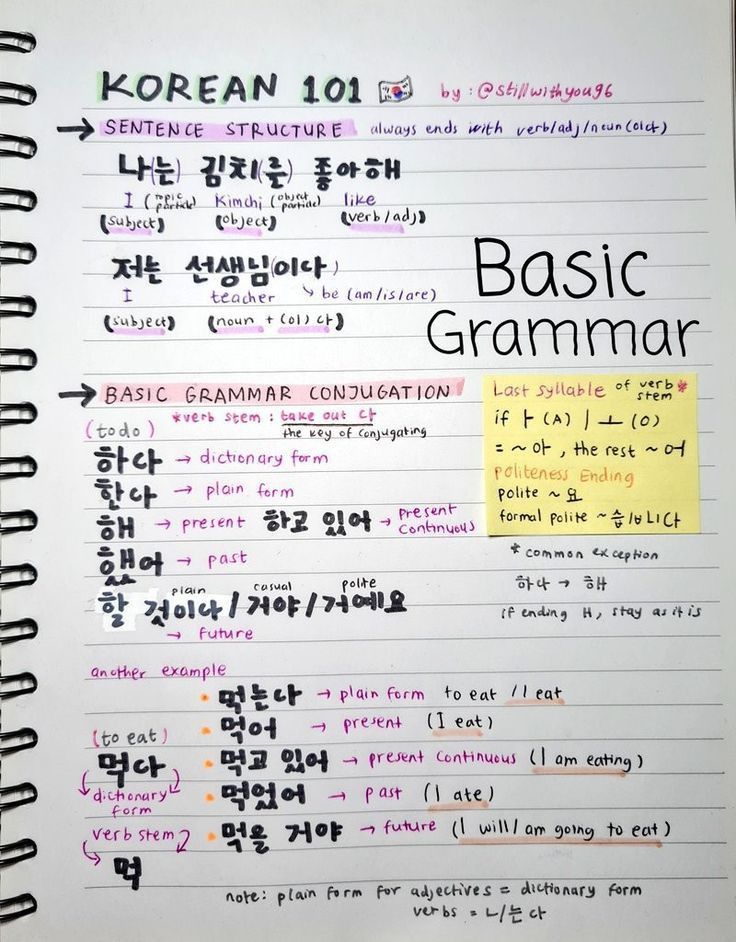 KOREAN 101
by : @stillwithyou96
→ SENTENCE STRUCTURE always ends with verb/adj/noun(이다)
나(는) 김치(를) 좋아해
I (topic particle) Kimchi (object particle) like
(subject) (object) (verb/adj)
저는 선생님(이다)
I teacher ↳ be (am/is/are)
(subject) (noun + (이)다)
Basic
Grammar
→ BASIC GRAMMAR CONJUGATION
*verb stem : take out 다
the key of conjugating
(to do)
하다 → dictionary form
한다 → plain form
해 → present 하고 있어 → present continuous
했어 → past
plain casual polite
할 것이다/거야/거예요
→ future
Last syllable of verb stem *
if ㅏ(A) | ㅗ (O)
= ~아, the rest ~어
Politeness Ending
polite ~요
formal polite ~습/ㅂ니다
* common exception
하다 → 해
if ending ㅐ, stay as it is
another example
• 먹는다 → plain form to eat / I eat
• 먹어 → present (I eat)
(to eat)
먹다
dictionary form
verb stem
먹
• 먹고 있어 → present continuous (I am eating)
• 먹었어 → past (I ate)
• 먹을 거야 → future (I will / am going to eat)
note: plain form for adjectives = dictionary form
verbs = ㄴ/는다